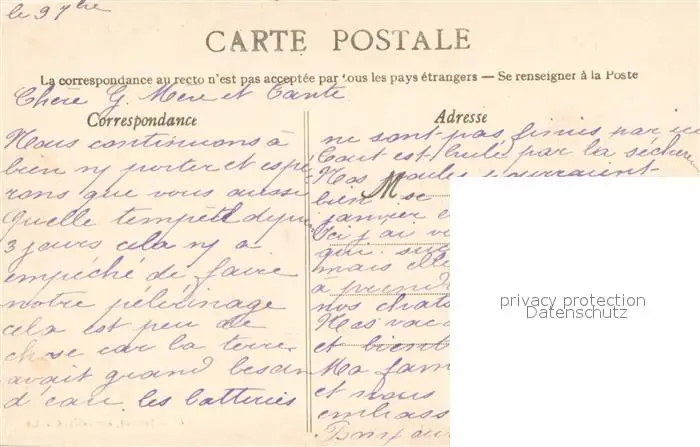 le 9 7bre
CARTE POSTALE
La correspondance au recto n'est pas acceptée par tous les pays étrangers — Se renseigner à la Poste
Chère G. Mère et Tante
Correspondance
Nous continuons à
bien ns porter et espé
rons que vous aussi
Quelle tempête depuis
3 jours cela ns a
empéché de faire
notre pélérinage
cela est peu de
chose car la terre
avait grand besoin
d'eau. les batteries
Adresse
ne sont pas finies par ici
tout est brulé par la séche
Nos poules pourraient
M
bien se
janvier
Ici j'ai
qui
mais elle
à prendre
nos chats
Nos vac
et bient
Ma fam
et nous
embrass
privacy protection
Datenschutz